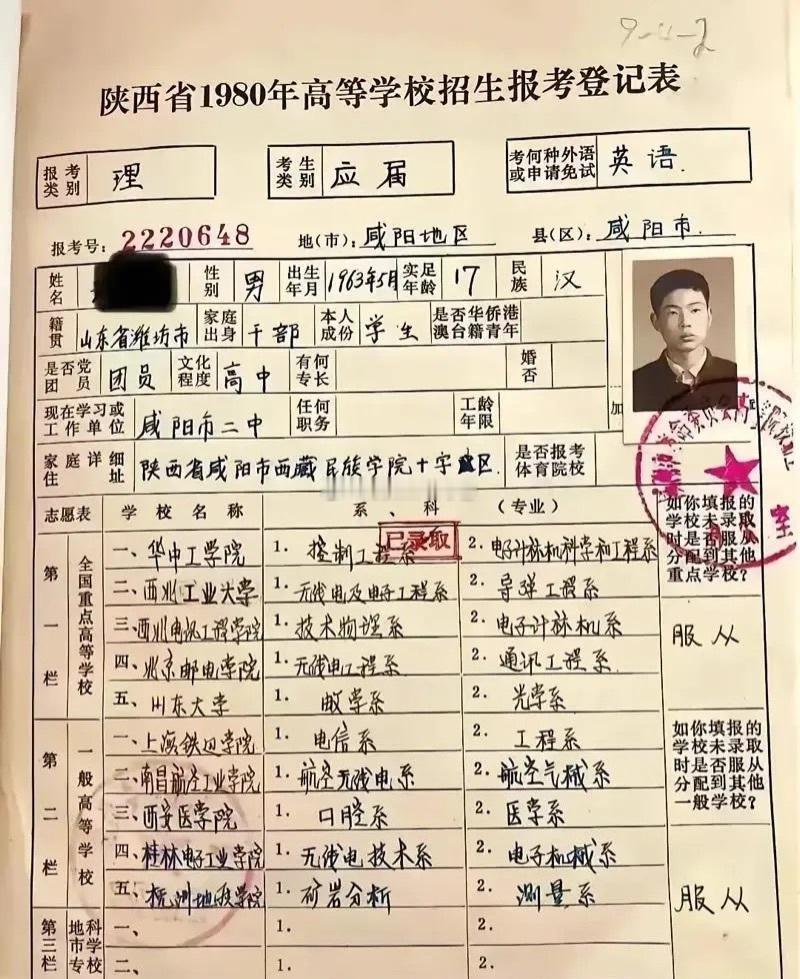 9-4-2
陕西省1980年高等学校招生报考登记表
报考类别 理 考生类别 应届 考何种外语或申请免试 英语
报考号: 2220648 地(市): 咸阳地区 县(区): 咸阳市
姓名 性别 男 出生年月 1963年5月 实足年龄 17 民族 汉
籍贯 山东省潍坊市 家庭出身 干部 本人成份 学生 是否华侨港澳台籍青年
是否党团员 团员 文化程度 高中 有何专长 婚否
现在学习或工作单位 咸阳市二中 任何职务 工龄年限 加
家庭详细住址 陕西省咸阳市西藏民族学院十字区 是否报考体育院校
志愿表 学校名称 系、科 (专业) 如你填报的学校未录取时是否服从分配到其他重点学校?
已录取
第一栏 全国重点高等学校
一、华中工学院 1. 控制工程系 2. 电子计标机科学和工程系
二、西北工业大学 1. 无线电及电子工程系 2. 导弹工程系
三、西北电讯工程学院 1. 技术物理系 2. 电子计标机系 服从
四、北京邮电学院 1. 无线电工程系 2. 通讯工程系
五、山东大学 1. 数学系 2. 光学系
第二栏 一般高等学校 如你填报的学校未录取时是否服从分配到其他一般学校?
一、上海铁道学院 1. 电信系 2. 工程系
二、南昌航空工业学院 1. 航空无线电系 2. 航空气械系
三、西安医学院 1. 口腔系 2. 医学系
四、桂林电子工业学院 1. 无线电技术系 2. 电子机械系
五、地质学院 1. 矿岩分析 2. 测量系 服从
第三栏 地市 科学专校
一、 1. 2.
二、 1. 2.